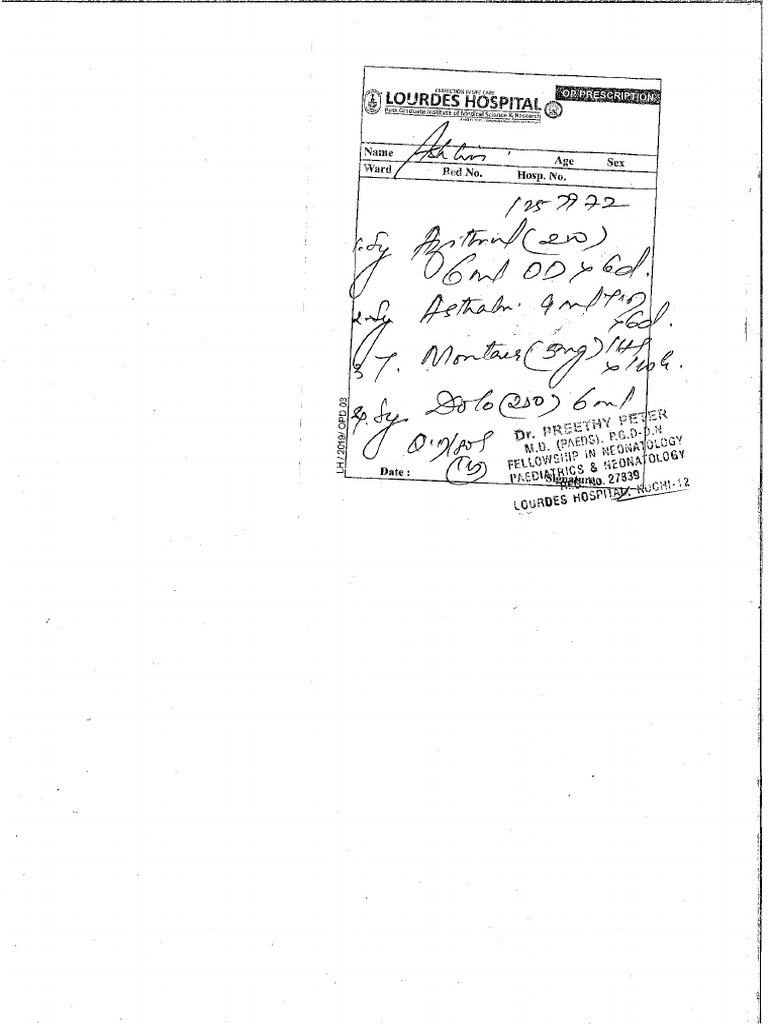 PERFECTION IN LIFE CARE
LOURDES HOSPITAL
OP PRESCRIPTION
Post Graduate Institute of Medical Science & Research
Name Age Sex
Ward Bed No. Hosp. No.
1257972
1. Sy (200)
6 ml OD x 6d.
2. Sy Asthalin 4 ml
x 6d.
3 T. (5mg) 1 HS
4. Sy. Dolo (250) 6 ml
LH / 2019/ OPD 03
Date :
Signature
Dr. PREETHY PETER
M.D. (PAEDS), P.G.D-D.N
FELLOWSHIP IN NEONATOLOGY
PAEDIATRICS & NEONATOLOGY
No. 27839
LOURDES HOSPITAL, KOCHI-12